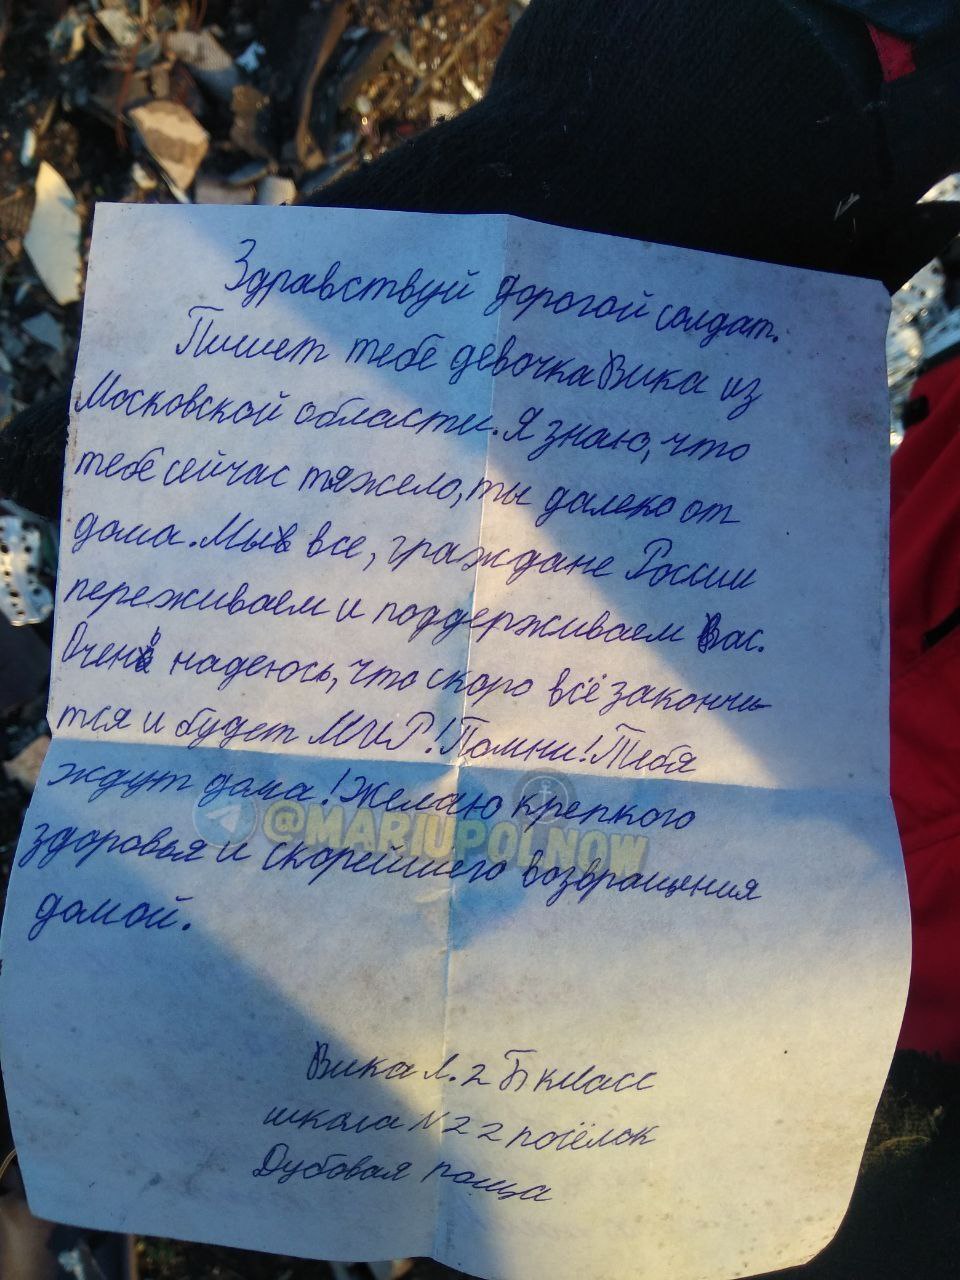 Здравствуй дорогой солдат.
Пишет тебе девочка Вика из
Московской области. Я знаю, что
тебе сейчас тяжело, ты далеко от
дома. Мы все, граждане России
переживаем и поддерживаем Вас.
Очень надеюсь, что скоро всё закончи-
тся и будет МИР! Помни! Тебя
ждут дома! Желаю крепкого
@MARIUPOLNOW
здоровья и скорейшего возвращения
домой.
Вика Л. 2 Б класс
школа N22 посёлок
Дубовая роща